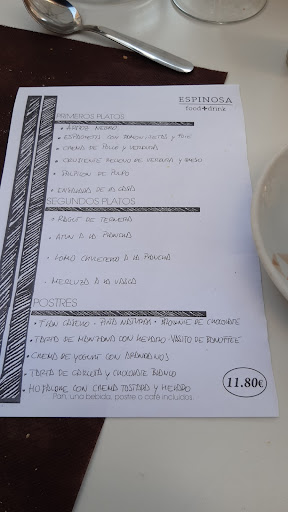 ESPINOSA
food+drink
PRIMEROS PLATOS
• ARROZ NEGRO
• ESPAGUETIS CON
• CREMA DE POLLO y VERDURA
• CRUJIENTE RELLENO DE VERDURA y QUESO
• DE PULPO
• ENSALADAS DE LA CASA
SEGUNDOS PLATOS
• RAGUT DE TERNERA
• ATUN A LA PLANCHA
• LOMO A LA PLANCHA
• MERLUZA A LA VASCA
POSTRES
• FLAN CASERO - PIÑA NATURAL - BROWNIE DE CHOCOLATE
• TARTA DE MANZANA CON HELADO - VASITO DE BANOFFEE
• CREMA DE YOGURT CON ARANDANOS
• TARTA DE GALLETA y CHOCOLATE BLANCO
• HOJALDRE CON CREMA TOSTADA y HELADO
Pan, una bebida, postre o café incluidos.
11.80€